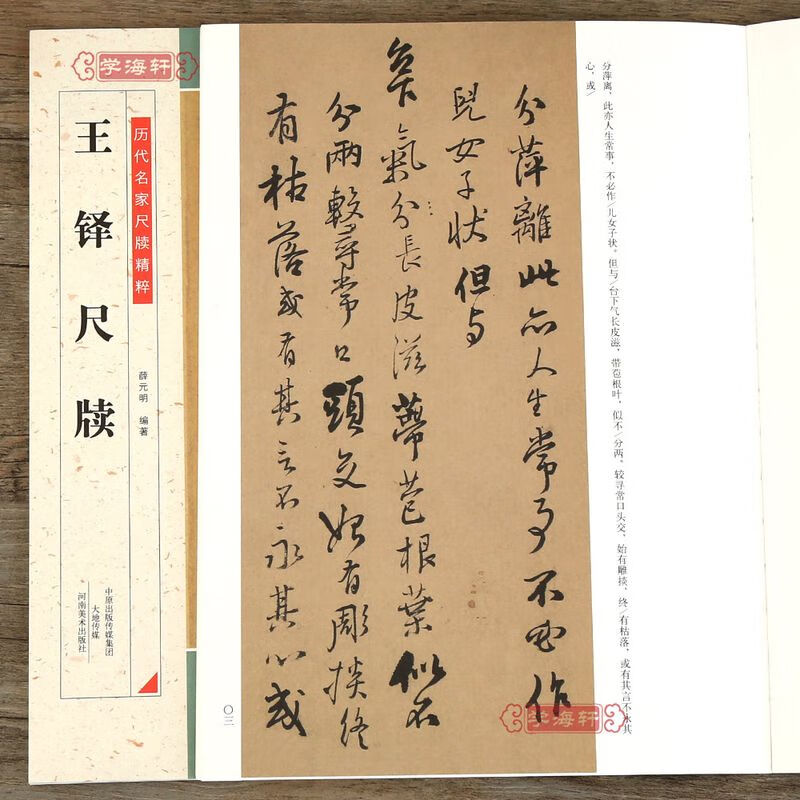 学海轩
历代名家尺牍精粹
王铎尺牍
薛元明 编著
中原出版传媒集团
大地传媒
河南美术出版社
分萍離此亦人生常事不必作
兒女子狀但与
台下氣分長皮滋蔕苞根葉似不
分兩較尋常口頭交始有彫掞終
有枯落或有其言不永其心或
分萍离，此亦人生常事，不必作/儿女子状。但与/台下气长皮滋，带苞根叶，似不/分两，较寻常口头交，始有雕掞，终/有枯落，或有其言不永其
心，或/
〇三
学海轩